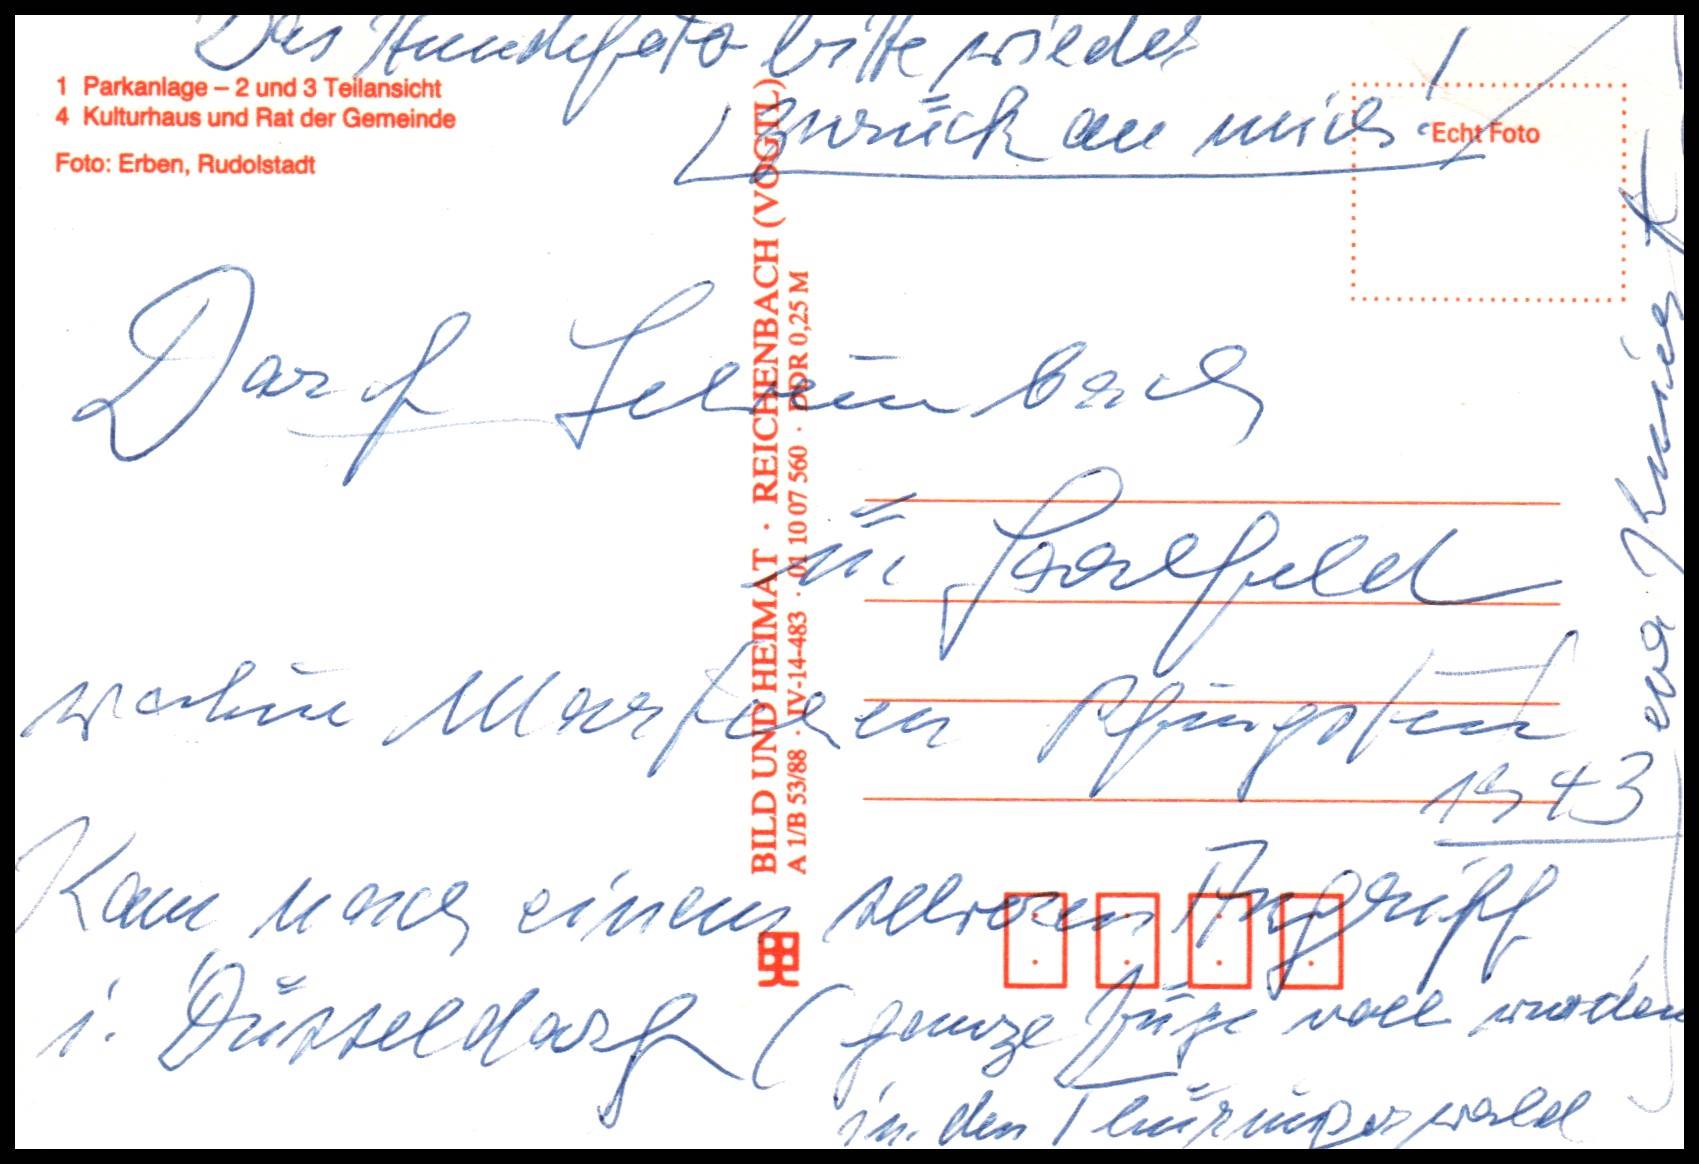 Das Hundefoto bitte wieder
zurück an mich!
1 Parkanlage – 2 und 3 Teilansicht
4 Kulturhaus und Rat der Gemeinde
Foto: Erben, Rudolstadt
Echt Foto
BILD UND HEIMAT · REICHENBACH (VOGTL)
A 1/B 53/88 · IV-14-483 · 01 10 07 560 · DDR 0,25 M
Dorf
bach
Saalfeld
Pfingsten
1943
Kam nach einem schweren Angriff
i. Düsseldorf (ganze Züge voll wurden
in den Thüringerwald